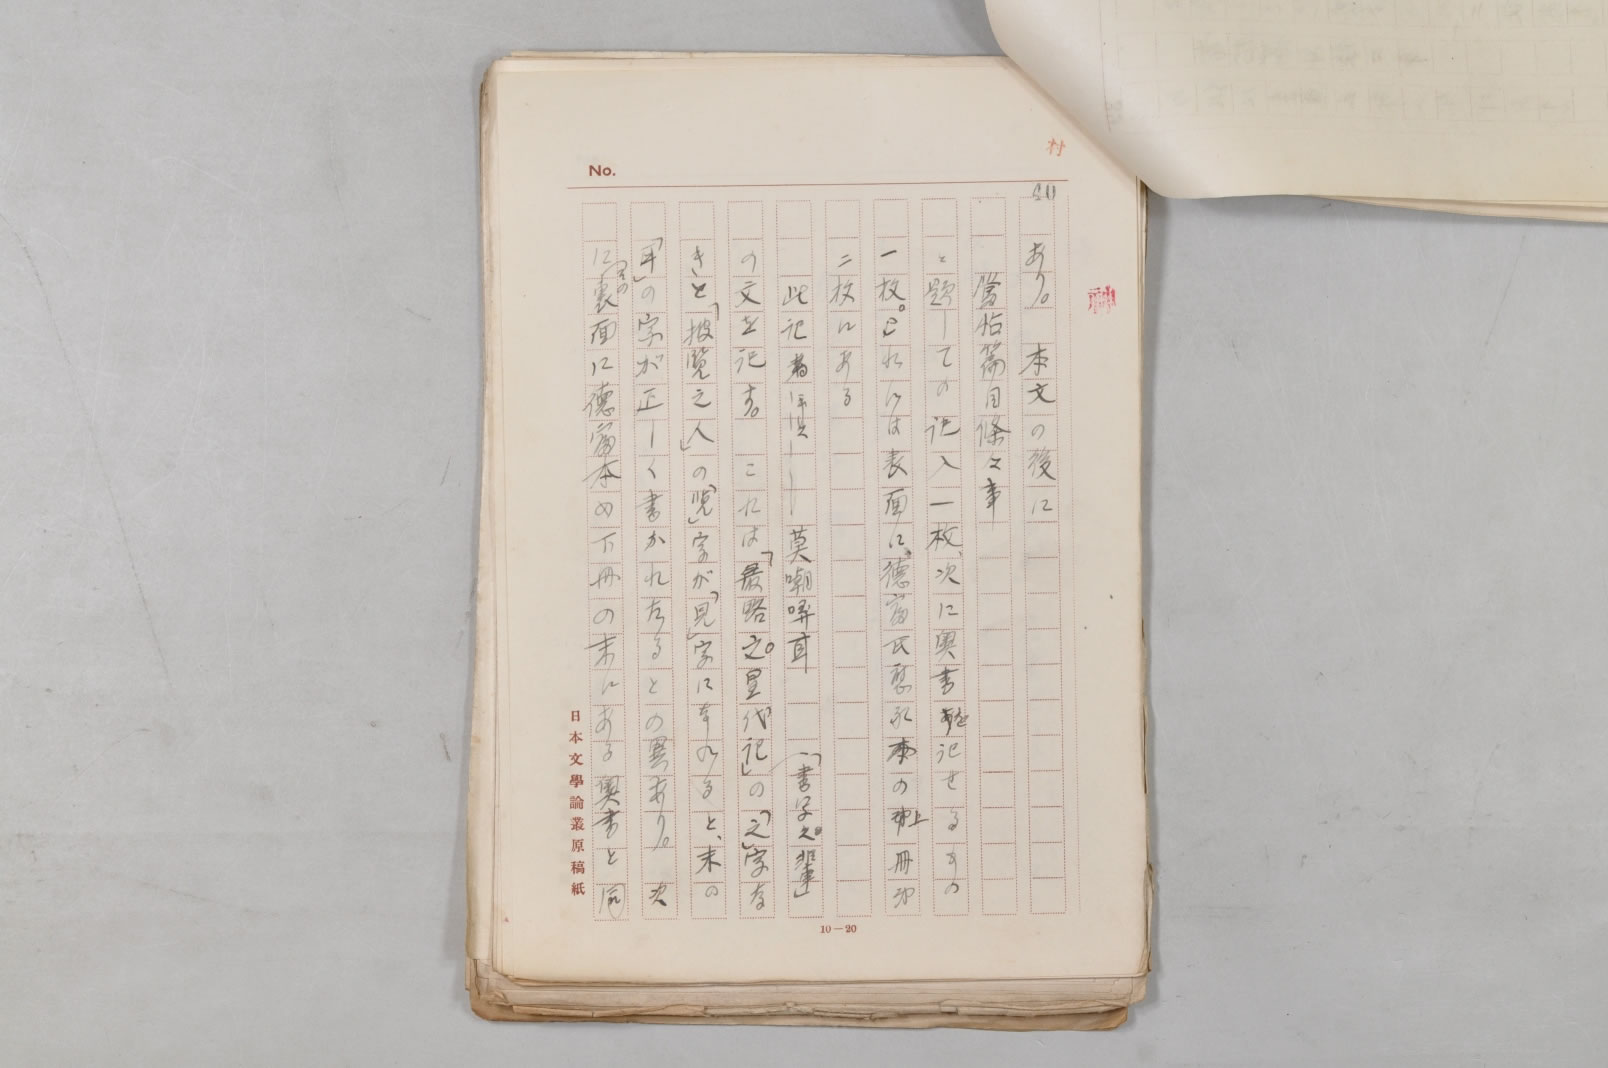 No.
村
あり。 本文の後に
篇目條々事
と題しての記入一枚、次に奥書を記せるもの
一枚。これには表面に、德富氏本の上冊
二枚にある
此記者 莫嘲哢耳 「書写之輩」
の文を記す。 これには、「最略之。皇代記」の「之」字な
きと「披覽之人」の「覽」字が「見」字になれると、末の
「耳」の字が正しく書かれたるとの異あり。 次
に、その裏面に德富本の下冊の末にある奥書と同
日本文學論叢原稿紙
10—20